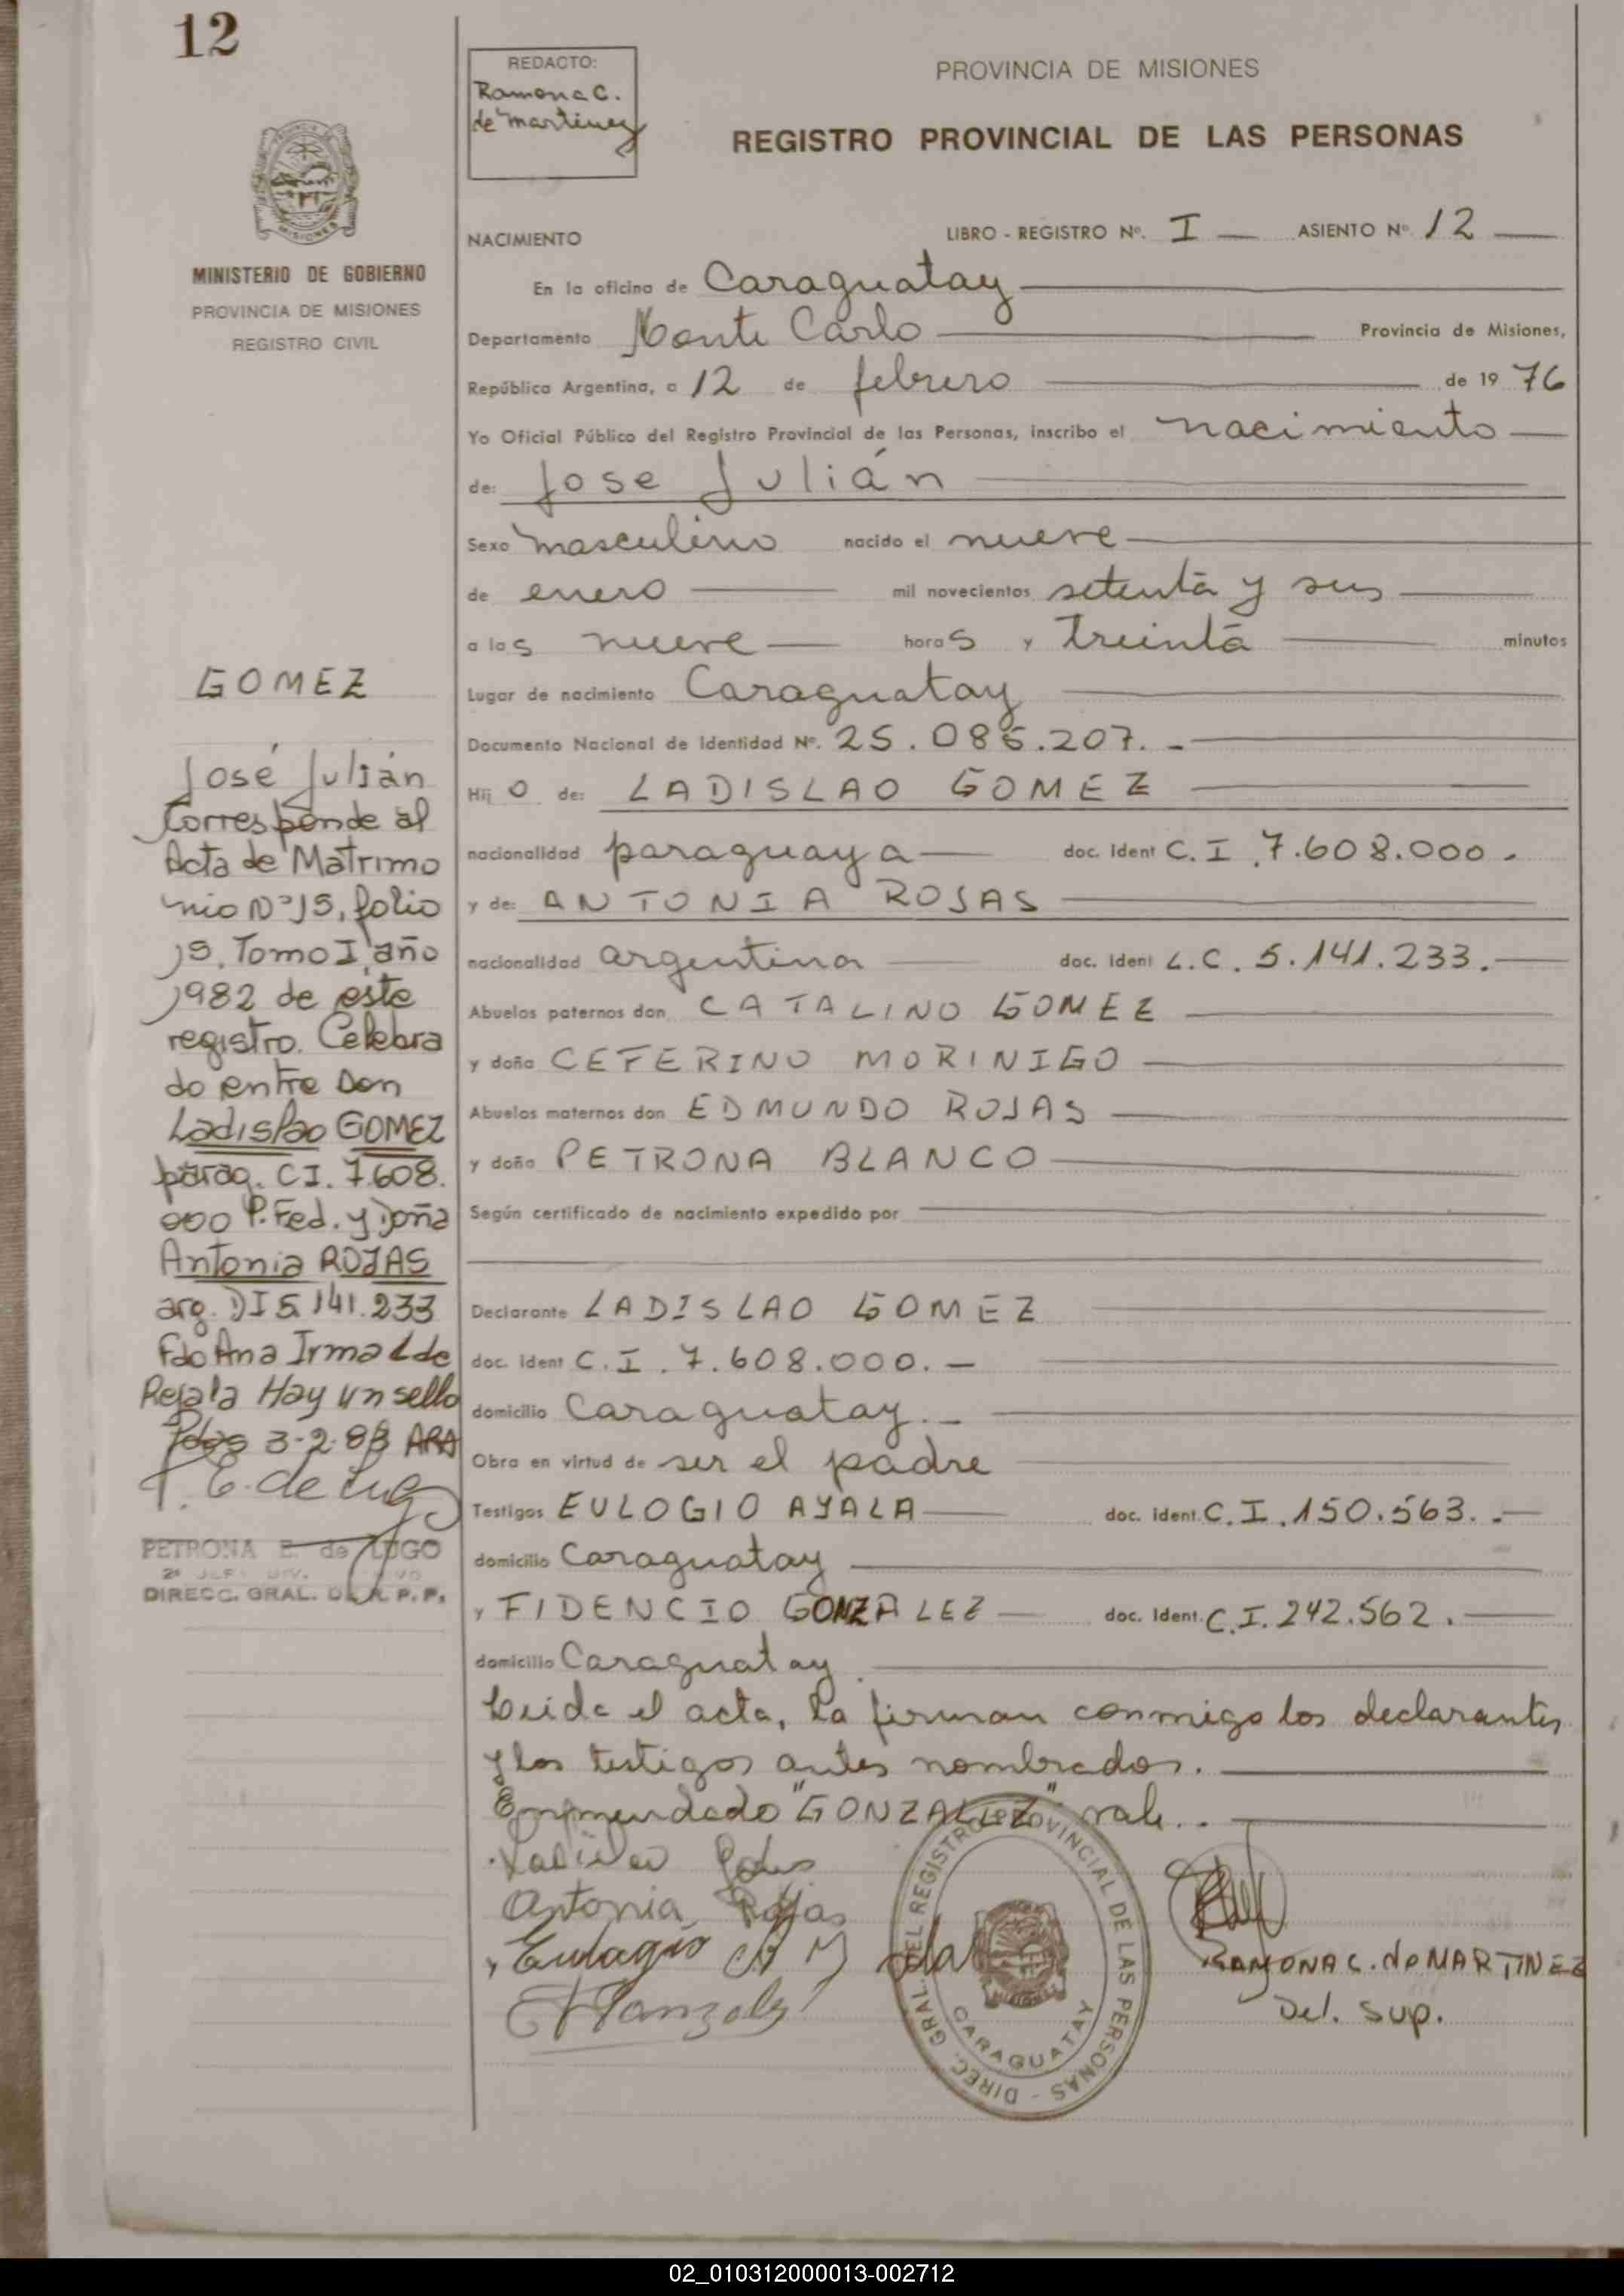 12
REDACTO:
Ramona C.
de Martinez
PROVINCIA DE MISIONES
REGISTRO PROVINCIAL DE LAS PERSONAS
MISIONES
MINISTERIO DE GOBIERNO
PROVINCIA DE MISIONES
REGISTRO CIVIL
NACIMIENTO
LIBRO - REGISTRO Nº. I ASIENTO Nº 12
En la oficina de Caraguatay
Departamento Monte Carlo Provincia de Misiones,
República Argentina, a 12 de febrero de 19 76
Yo Oficial Público del Registro Provincial de las Personas, inscribo el nacimiento
de: Jose Julián
Sexo masculino nacido el nueve
de enero mil novecientos setenta y seis
a las nueve horas y treinta minutos
Lugar de nacimiento Caraguatay
Documento Nacional de Identidad Nº. 25.085.207.-
Hijo de: LADISLAO GOMEZ
nacionalidad paraguaya doc. ident C.I 7.608.000.
y de: ANTONIA ROJAS
nacionalidad argentina doc. ident L.C. 5.141.233.
Abuelos paternos don CATALINO GOMEZ
y doña CEFERINO MORINIGO
Abuelos maternos don EDMUNDO ROJAS
y doña PETRONA BLANCO
Según certificado de nacimiento expedido por
Declarante LADISLAO GOMEZ
doc. ident C.I. 7.608.000.-
domicilio Caraguatay.-
Obra en virtud de ser el padre
Testigos EULOGIO AYALA doc. ident. C.I. 150.563.-
domicilio Caraguatay
y FIDENCIO GONZALEZ doc. ident. C.I. 242.562.
domicilio Caraguatay
Leida el acta, la firman conmigo los declarantes
y los testigos antes nombrados.
Enmendado "GONZALEZ" vale..
Antonia Rojas
Eulogio
RAMONA C. de MARTINEZ
Del. Sup.
DIREC. GRAL. DEL REGISTRO PROVINCIAL DE LAS PERSONAS
CARAGUATAY
GOMEZ
José Julián
Corresponde al
Acta de Matrimo
nio Nº 15, folio
15. Tomo I año
1982 de este
registro. Celebra
do entre Don
Ladislao GOMEZ
parag. C.I. 7.608.
000 P. Fed. y Doña
Antonia ROJAS
arg. DI 5.141.233
Fdo Ana Irma L de
Hay un sello
Pdas 3-2-83
PETRONA E. de LUGO
DIRECC. GRAL. DE R. P. P.
02_010312000013-002712